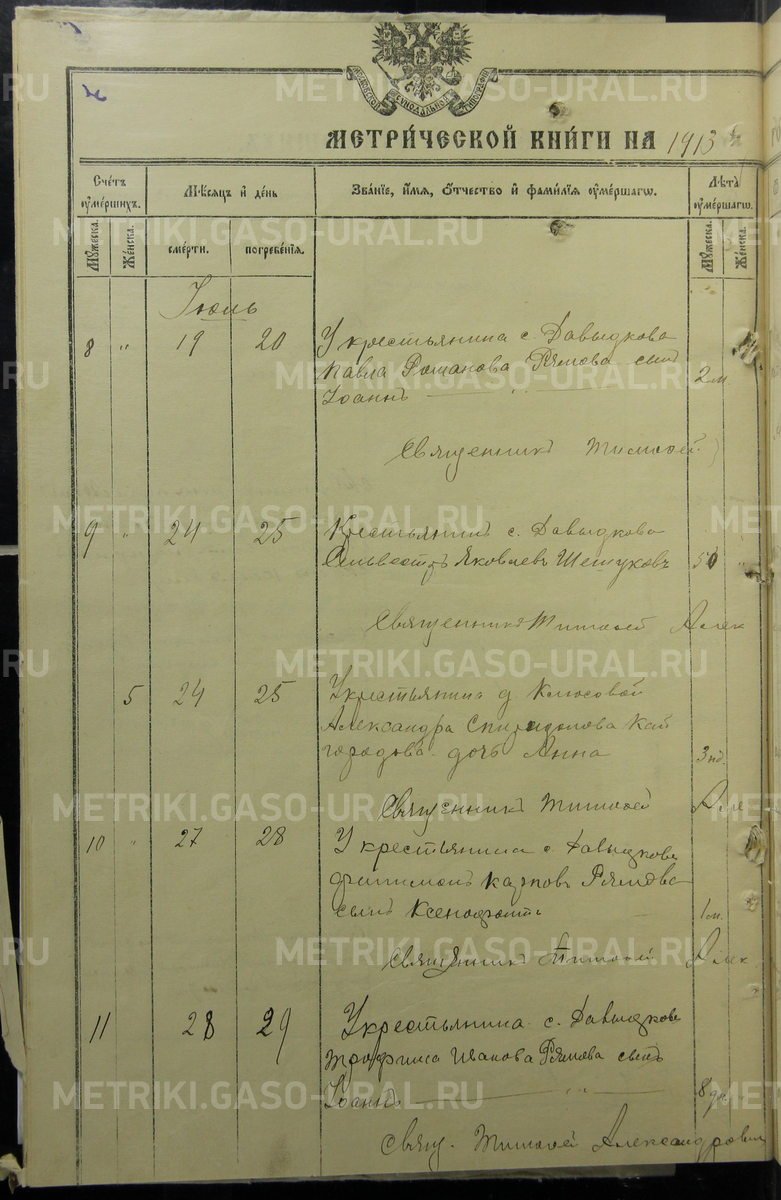 МОСКОВСКОЙ СѴНОДАЛЬНОЙ ТИПОГРАФІИ
МЕТРИ́ЧЕСКОЙ КНИ́ГИ НА 1913
Сче́тъ ᲂу҆ме́ршихъ.
Мѣ́сяцъ и҆ де́нь
Зва́нїе, и҆́мѧ, ѻ҆́тчество и҆ фами́лїѧ ᲂу҆ме́ршагѡ.
Лѣ́та ᲂу҆ме́ршагѡ.
Мꙋ́жеска.
Же́нска.
сме́рти.
погребе́нїѧ.
Мꙋ́жеска.
Же́нска.
Іюль
8 " 19 20 У крестьянина с. Давыдкова
Павла Романова Рямова сынъ
Іоаннъ 2 м.
Священникъ Тимофей
9 " 24 25 Крестьянинъ с. Давыдкова
Сильвестръ Яковлевъ Шешуковъ 50 "
Священникъ Тимофей Алек
5 24 25 У крестьянина д. Клюсовой
Александра Спиридонова Кай
городова дочь Анна 3 нд.
Священникъ Тимофей Але
10 " 27 28 У крестьянина с. Давыдкова
Филимонъ Карповъ Рямова
сынъ Ксенофонтъ 1 м.
Священникъ Тимофей Алек
11 28 29 У крестьянина с. Давыдкова
Трофима Иванова Рямова сынъ
Іоаннъ " 8 дн.
Свящ. Тимофей Александровъ
METRIKI.GASO-URAL.RU